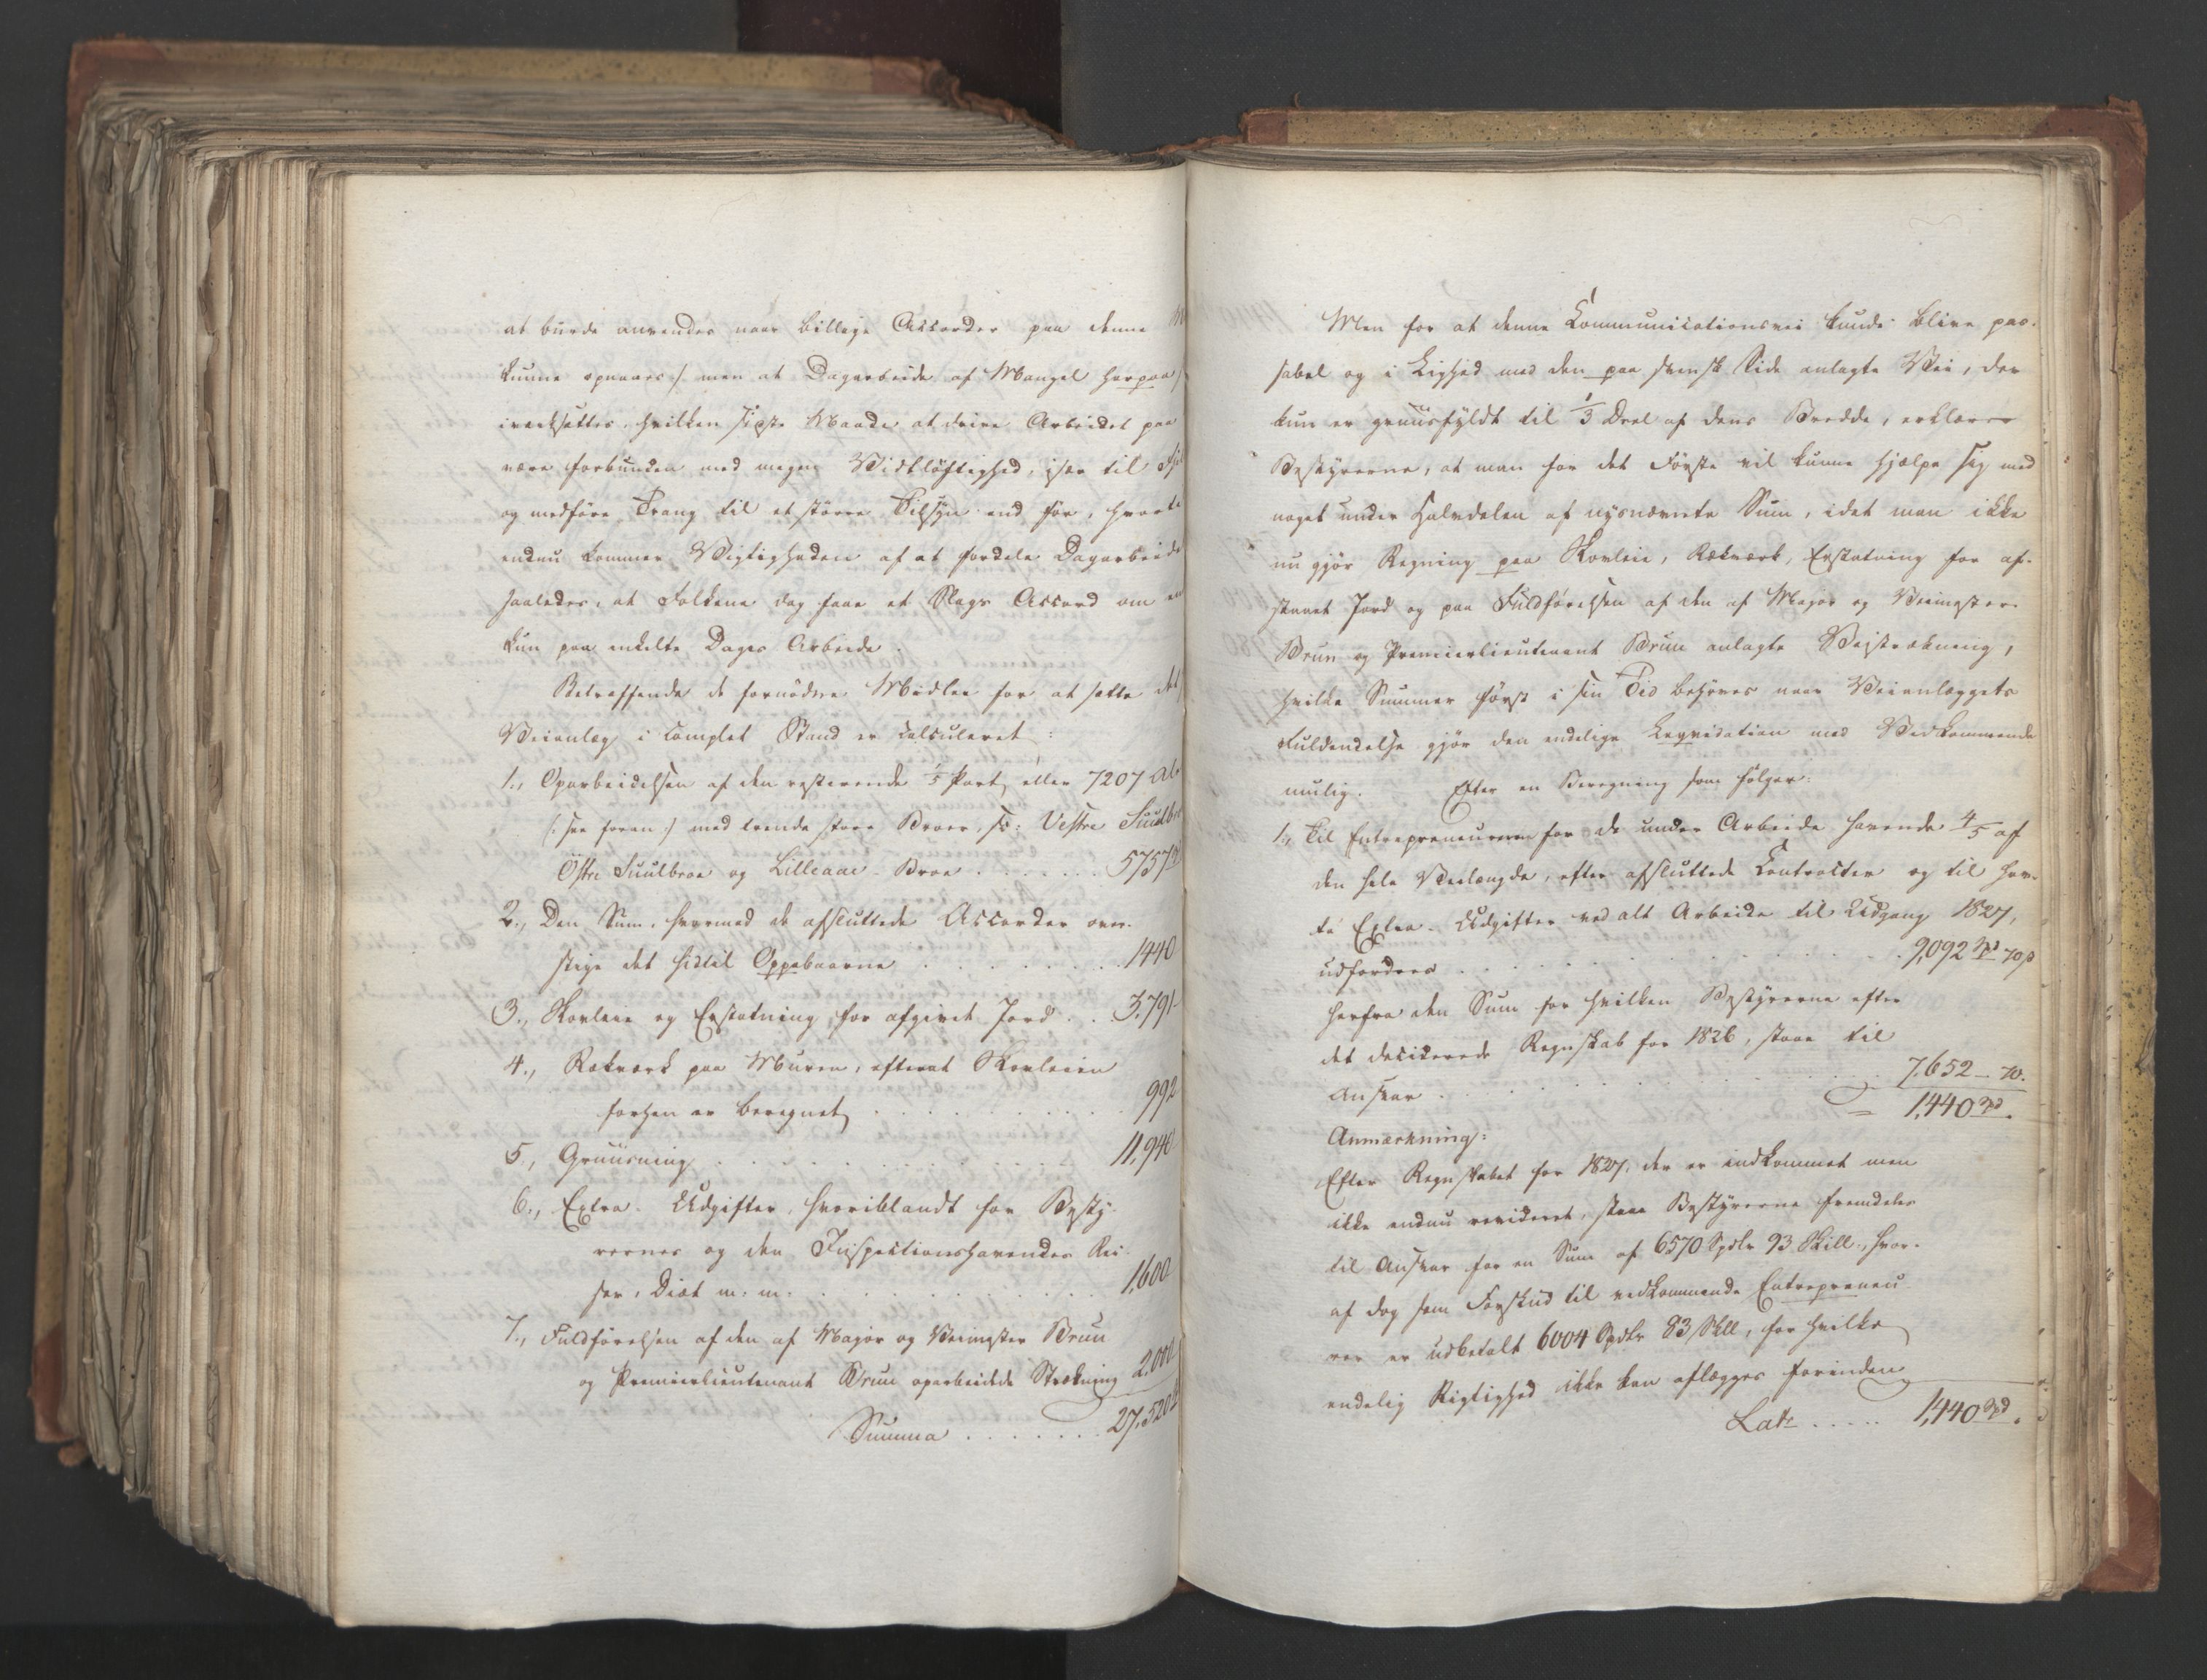 at burde anvendes naar billige Accorder paa denne
kunne opnaaes/ men at Dagarbeide af Mangel herpaa
iverksættes, hvilken sidste Maade at drive Arbeidet paa
være forbunden med megen Vidtløftighed, især til
og medføre Trang til et større Tilsyn end før, hvortil
endnu kommer Vigtigheden af at fordele Dagarbeide
saaledes, at Folkene dog faae et Slags Accord om
kun paa enkelte Dages Arbeide.
Betræffende de fornødne Midler for at sætte det
Veianlæg i complet Stand er calculeret:
1., Oparbeidelsen af den resterende 1/5 Part, eller 7207 Al
(: see foran :) med trende store Broer, sc: Vestre Suulbroe
Østre Suulbroe og Lilleaae-Broe . . . . . . . 5757
2., Den Sum, hvormed de afsluttede Accorder over-
stige det hidtil Oppebaarne . . . . . . . . 1440
3., Rovleie og Erstatning for afgivet Jord . . 3,791
4., Rækværk paa Muren, efterat Rovleien
forhen er beregnet . . . . . . . . . . 992
5., Gruusning . . . . . . . . . . . . 11,940
6., Extra-Udgifter, hvoriblandt for Besty-
rernes og den Inspectionshavendes Rei-
ser, Diæt m. m. . . . . . . . . . . . 1,600
7., Fuldførelsen af den af Major og Veimester Brun
og Premierlieutenant Brun oparbeidede Strækning 2,000
Summa . . . . . . . 27,520
Men for at denne Communicationsvei kunde blive pas-
sabel og i Lighed med den paa svensk Side anlagte Vei, der
kun er gruusfyldt til 1/3 Deel af dens Bredde, erklærer
Bestyrerne, at man for det Første vil kunne hjælpe sig med
noget under Halvdelen af nysnævnte Sum, idet man ikke
nu gjør Regning paa Rovleie, Rækværk, Erstatning for af-
staaet Jord og paa Fuldførelsen af den af Major og Veimester
Brun og Premierlieutenant Brun anlagte Veistrækning,
hvilke Summer først i sin Tid behøves naar Veianlæggets
Fuldendelse gjør den endelige Leqvidation med Vedkommende
mulig. Efter en Beregning som følger:
1., Til Entrepreneurerne for de under Arbeide havende 4/5 af
den hele Veilængde, efter afsluttede Contracter og til hør-
te Extra-Udgifter ved alt Arbeide til Udgang 1827,
udfordres . . . . . . . . . . . . . . 9,092 Spd 70 ß
herfra den Sum for hvilken Bestyrerne efter
det deciderede Regnskab for 1826, staae til
Ansvar . . . . . . . . . . . . . . 7,652 – 70.
= 1,440 Spd.
Anmærkning:
Efter Regnskabet for 1827, der er indkommet men
ikke endnu revideret, staae Bestyrerne fremdeles
til Ansvar for en Sum af 6570 Spdlr 93 Skill., hvor-
af dog som Forskud til vedkommende Entrepreneu-
rer er udbetalt 6004 Spdlr 83 Skll, for hvilke
endelig Rigtighed ikke kan aflægges forinden
Lats . . . . . 1,440 Spd.